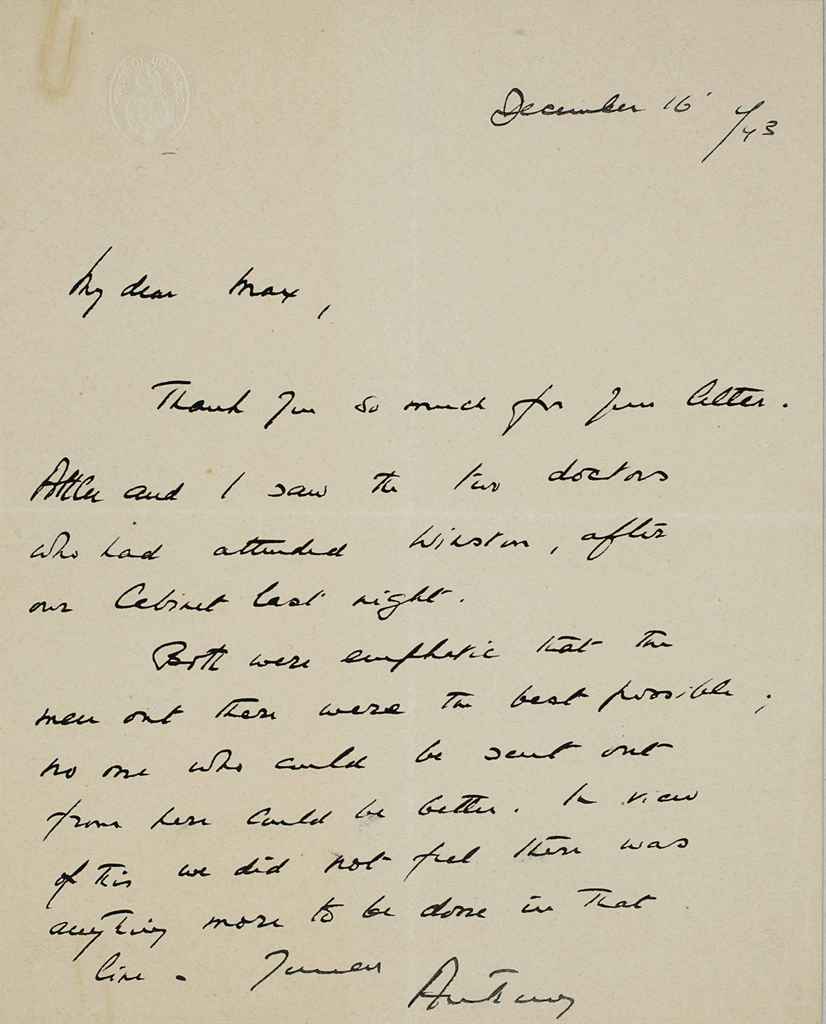 December 16 /43
My dear Max,
Thank you so much for your letter.
Attlee and I saw the two doctors
who had attended Winston, after
our Cabinet last night.
Both were emphatic that the
men out there were the best possible;
no one who could be sent out
from here could be better. In view
of this we did not feel there was
anything more to be done in that
line - Yours ever
Anthony